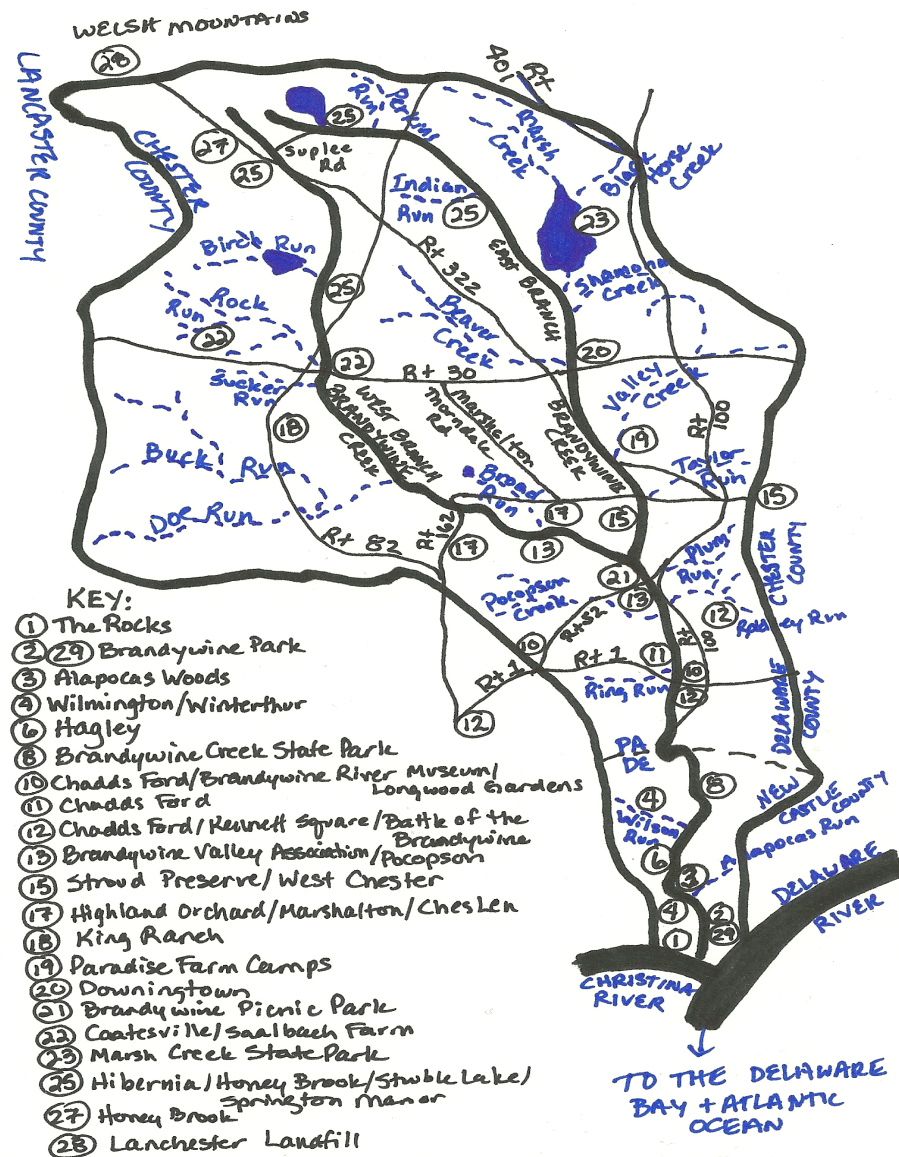 WELSH MOUNTAINS
28
Rt 401
LANCASTER COUNTY
CHESTER COUNTY
27
25
25
Perkins Run
Suplee Rd
Marsh Creek
Black Horse Creek
Indian Run
25
23
Birch Run
Rt 322
EAST BRANCH
Shamona Creek
25
Rock Run
22
Beaver Creek
22
20
Rt 30
Sucker Run
WEST BRANCH BRANDYWINE CREEK
Marshalton
Thorndale Rd
BRANDYWINE CREEK
Valley Creek
Rt 100
18
19
Buck Run
Broad Run
Taylor Run
15
Doe Run
Rt 82
Rt 162
17
17
13
15
Plum Run
CHESTER COUNTY
21
13
Pocopson Creek
Rt 52
12
Radley Run
Rt 100
10
Rt 1
Rt 1
11
10
12
Ring Run
12
DELAWARE COUNTY
PA
DE
8
4
NEW CASTLE COUNTY
Wilson Run
6
3
Alapocas Run
DELAWARE RIVER
4
1
2
29
CHRISTINA RIVER
TO THE DELAWARE
BAY + ATLANTIC
OCEAN
KEY:
1 The Rocks
2 29 Brandywine Park
3 Alapocas Woods
4 Wilmington/Winterthur
6 Hagley
8 Brandywine Creek State Park
10 Chadds Ford/Brandywine River Museum/
Longwood Gardens
11 Chadds Ford
12 Chadds Ford/Kennett Square/Battle of the
Brandywine
13 Brandywine Valley Association/Pocopson
15 Stroud Preserve/West Chester
17 Highland Orchard/Marshalton/ChesLen
18 King Ranch
19 Paradise Farm Camps
20 Downingtown
21 Brandywine Picnic Park
22 Coatesville/Saalbach Farm
23 Marsh Creek State Park
25 Hibernia/Honey Brook/Struble Lake/
Springton Manor
27 Honey Brook
28 Lanchester Landfill